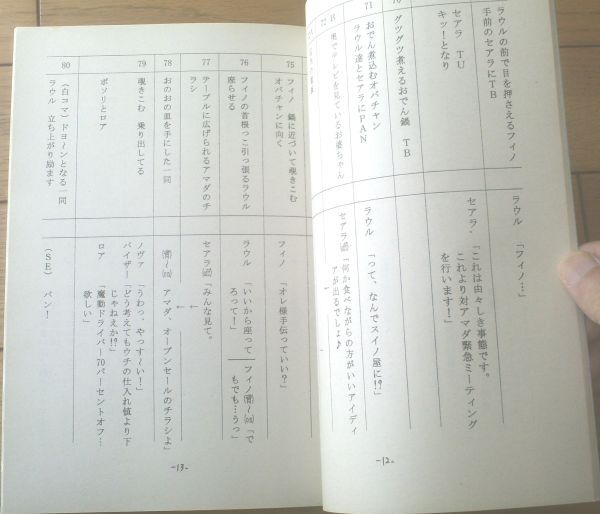 ラウルの前で目を押さえるフィノ
手前のセアラにTB
ラウル 「フィノ…」
セアラ TU
キッ！となり
セアラ・「これは由々しき事態です。
これより対アマダ緊急ミーティング
を行います！」
グツグツ煮えるおでん鍋 TB
71
おでん煮込むオバチャン
ラウル達とセアラにPAN
ラウル 「って、なんでスイノ屋に!?」
奥でテレビを見ているお婆ちゃん
セアラ 「何か食べながらの方がいいアイディ
アが出るでしょ♪
-12-
75
フィノ 鍋に近づいて覗きこむ
オバチャンに向く
フィノ 「オレ様手伝っていい？」
76
フィノの首根っこ引っ張るラウル
座らせる
ラウル 「いいから座って
ろって！」
フィノ 「で
もでも…うっ」
77
テーブルに広げられるアマダのチ
ラシ
セアラ 「みんな見て。
78
おのおの皿を手にした一同
アマダ、オープンセールのチラシよ」
79
覗きこむ 乗り出してる
ノヴァ 「うわっ、やっす～い！」
バイザー「どう考えてもウチの仕入れ値より下
じゃねえか!?」
ボソリとロア
ロア 「魔動ドライバー70パーセントオフ…
欲しい」
80
（白コマ）ドヨ～ンとなる一同
ラウル 立ち上がり励ます
（SE） バン！
-13-